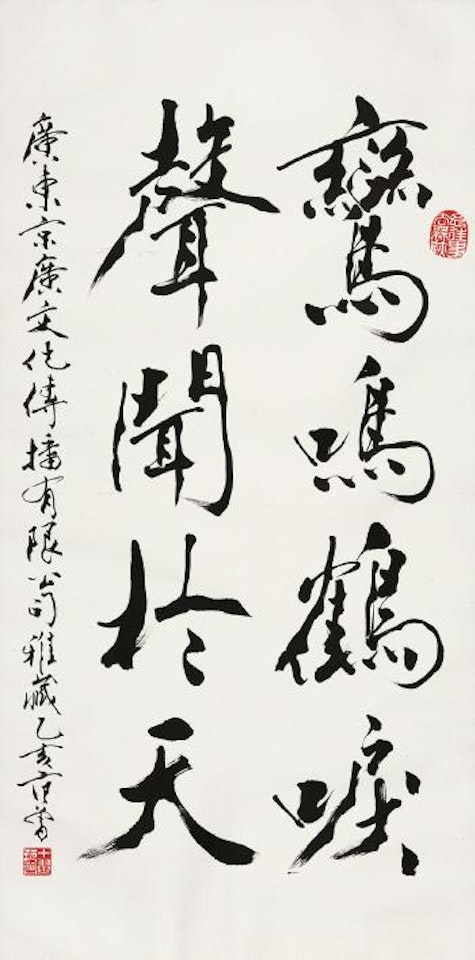 鸞鳴鶴唳
聲聞於天
廣東京廣文化傳播有限公司雅藏乙亥范曾